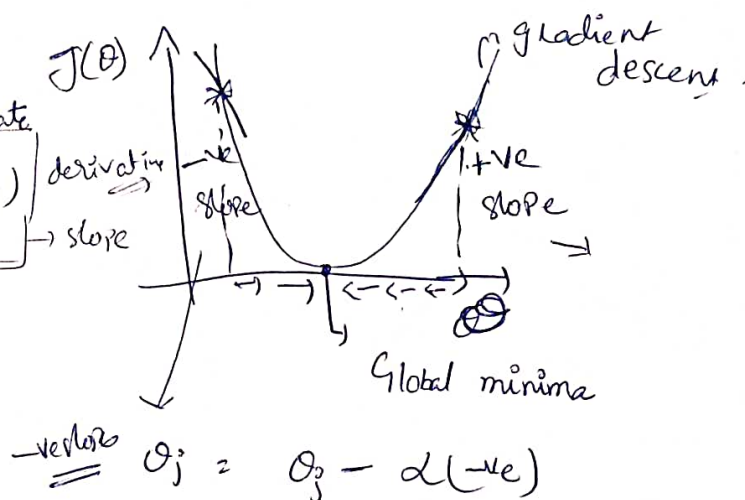 J(θ)
gradient
descent.
ate
)
derivative
-ve
slope
+ve
slope
→ slope
θ
Global minima
-ve slope θj = θj - α(-ve)